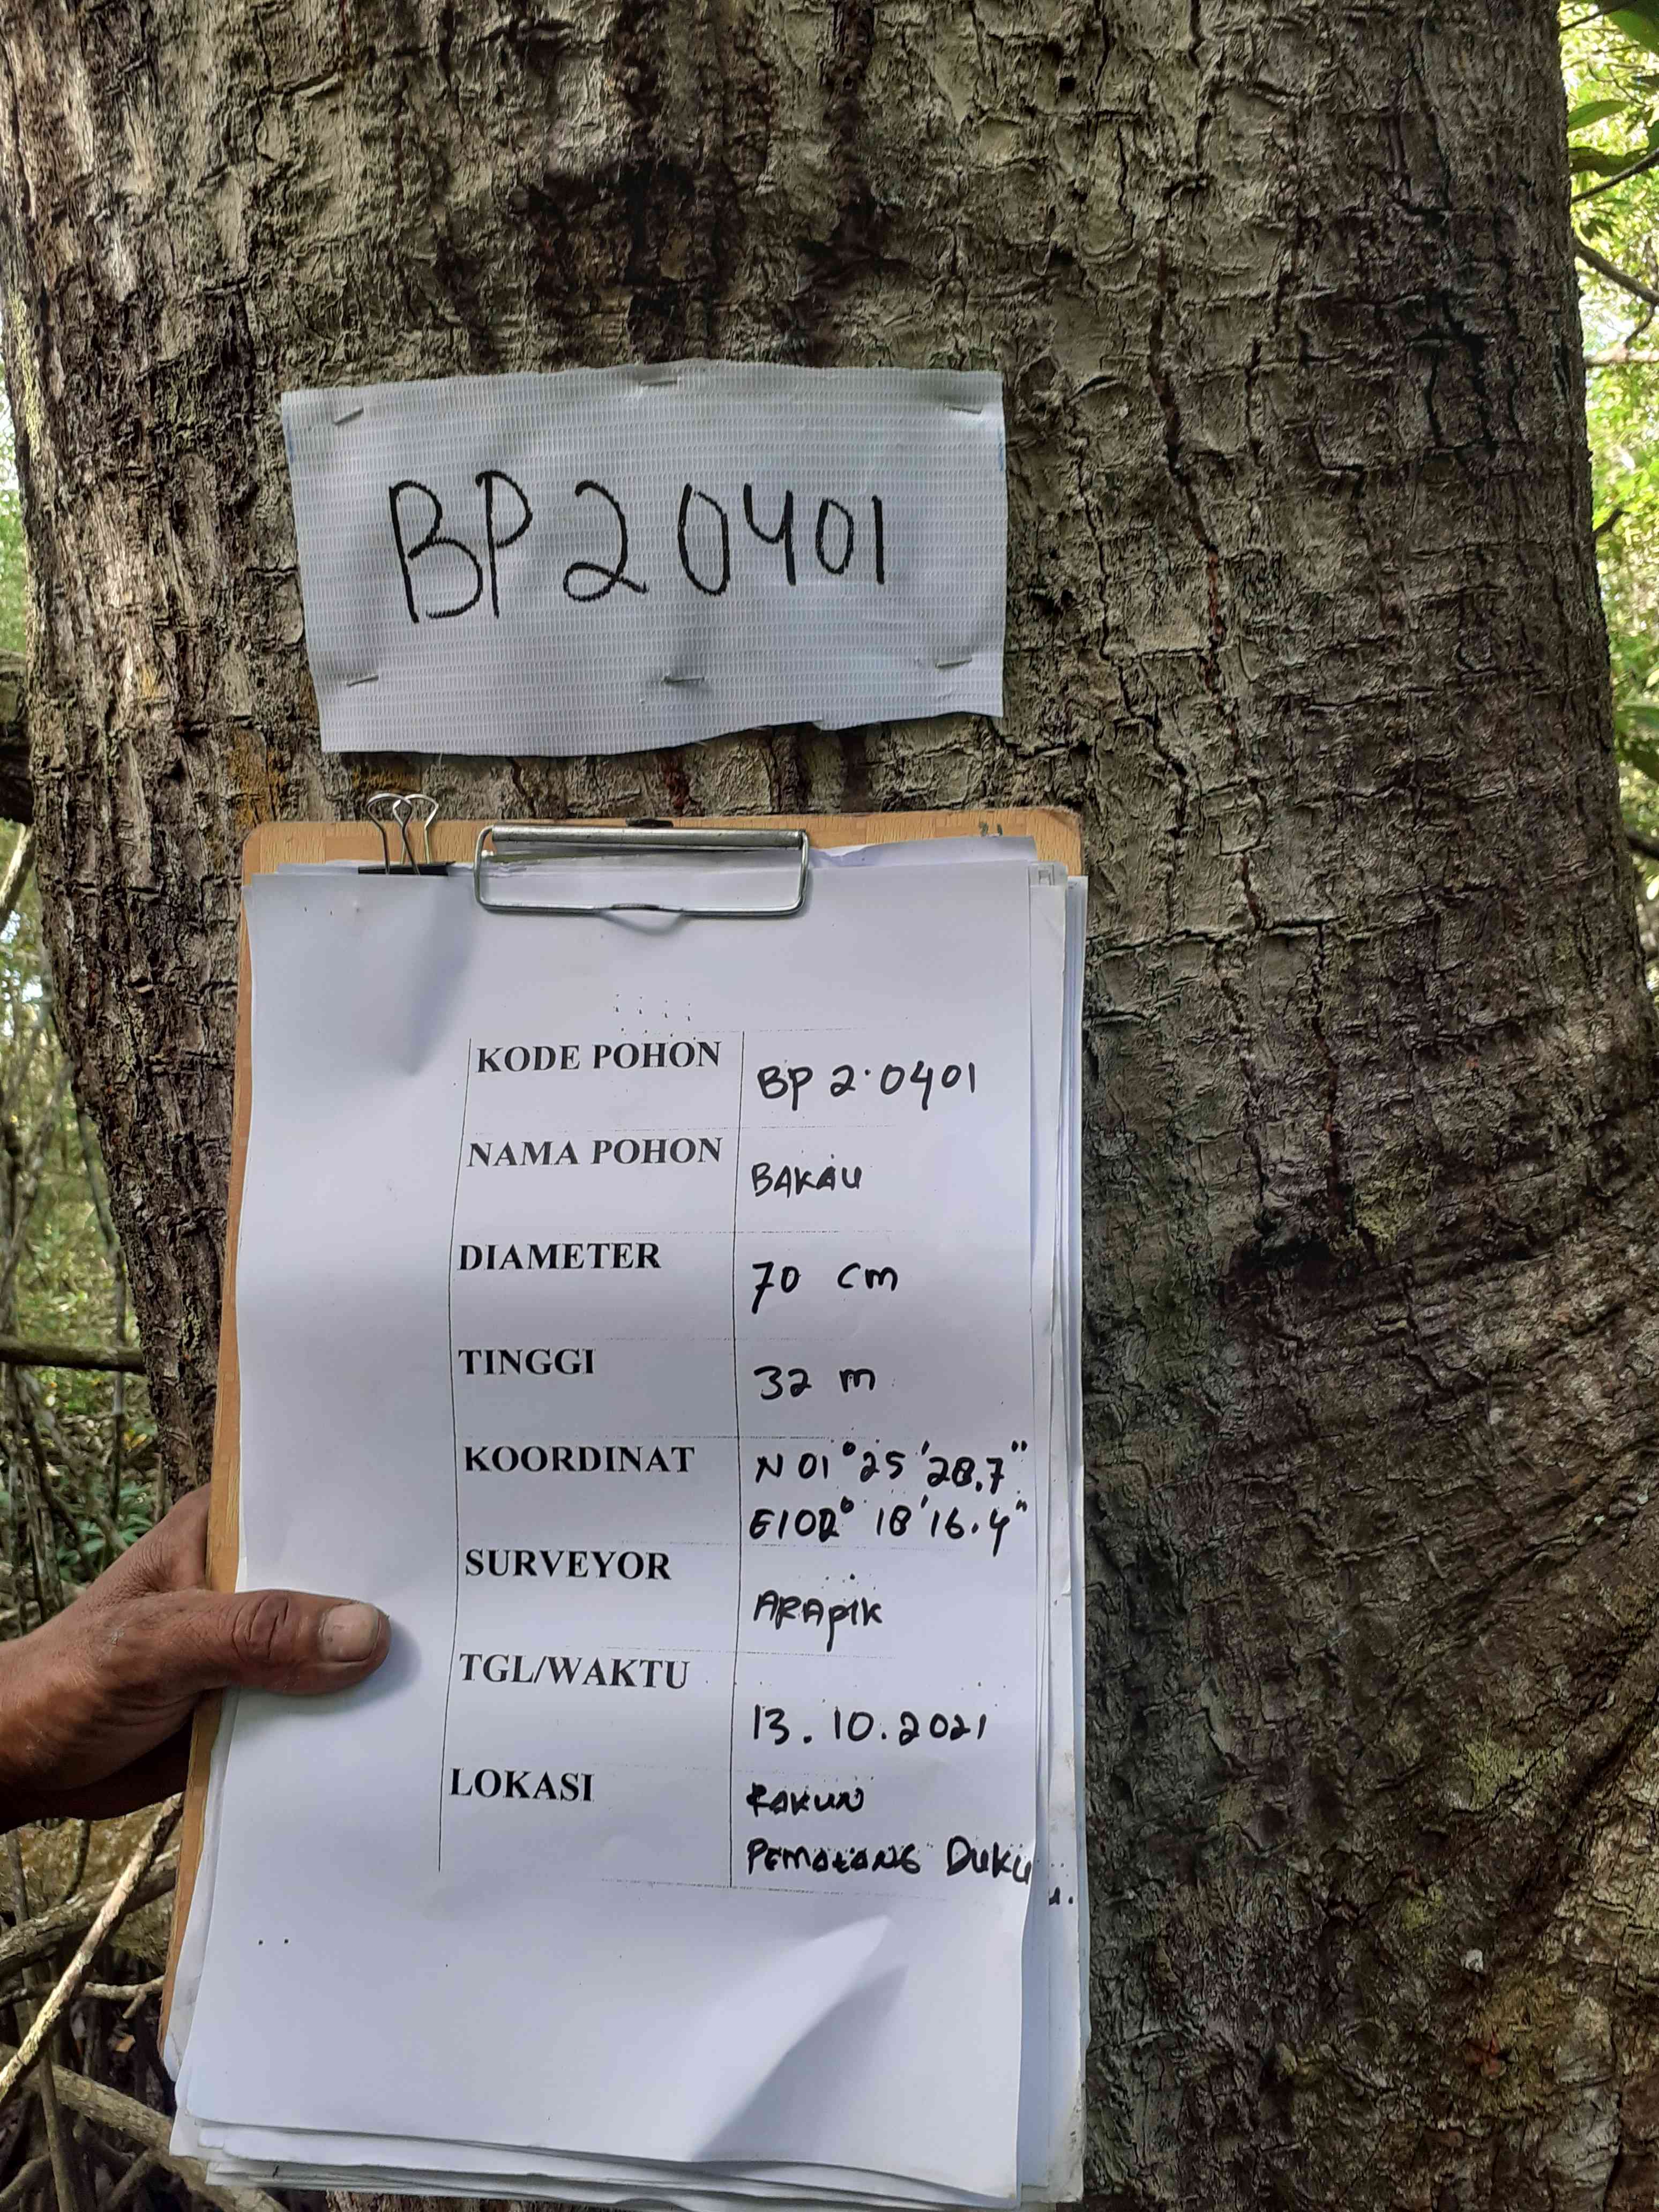 BP20401
KODE POHON BP 2.0401
NAMA POHON BAKAU
DIAMETER 70 cm
TINGGI 32 m
KOORDINAT N 01°25'28.7"
E102°18'16.4"
SURVEYOR ARAPIK
TGL/WAKTU 13.10.2021
LOKASI RAKUN
PEMATANG DUKU